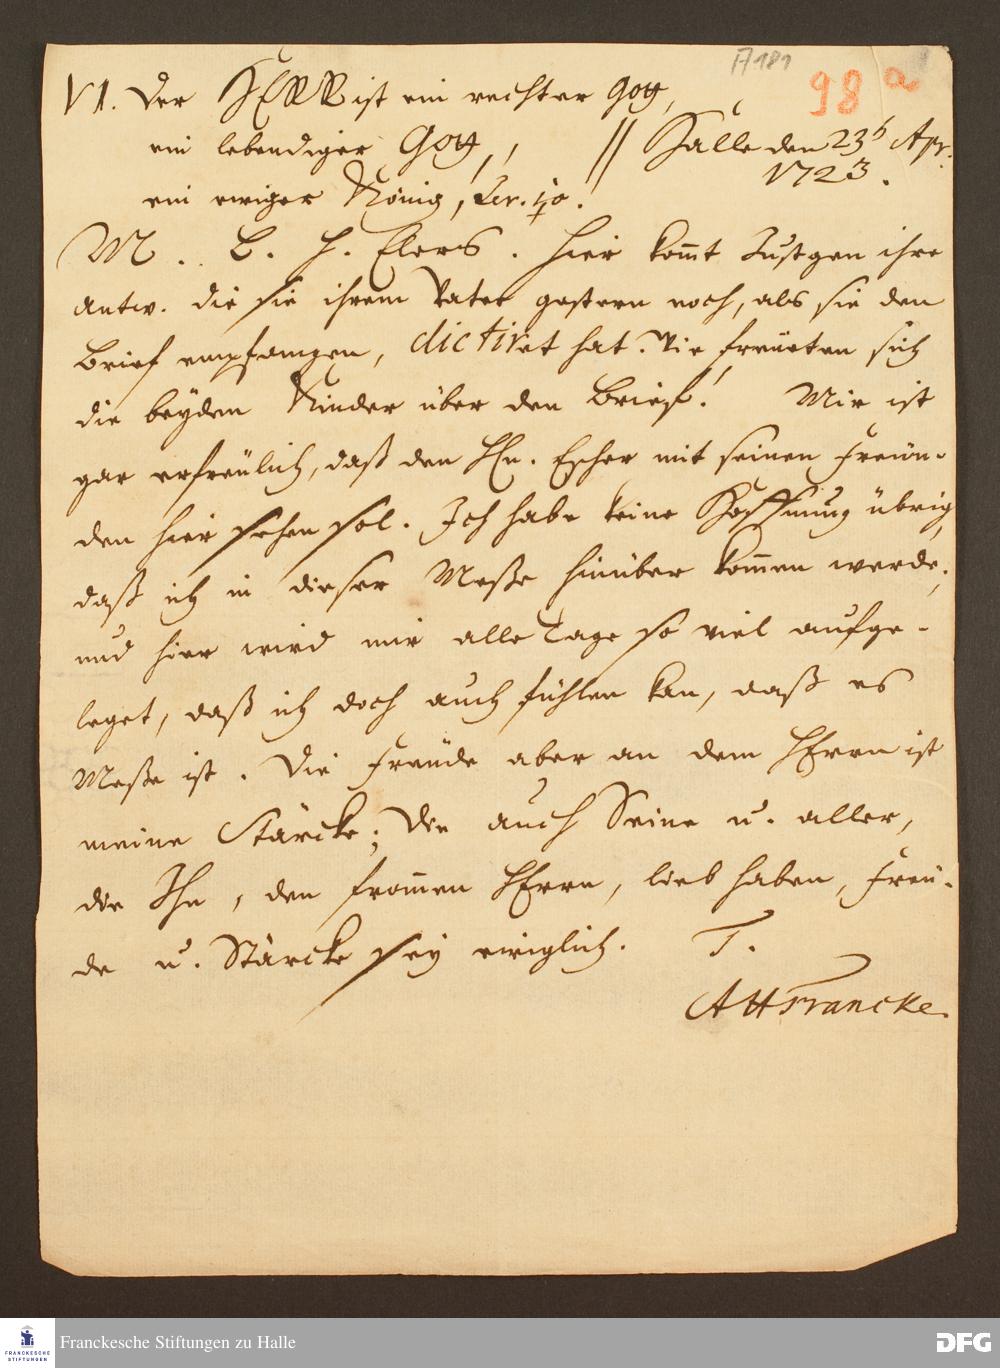 A 181
98 a
VI. Der HERR ist ein rechter Gott,
ein lebendiger Gott, // Halle den 23 Apr.
1723.
ein ewiger König, Jer. 10.
M. L. H. Elers. Hier kommt Justgen ihre
antw. die sie ihrem Vater gestern noch, als sie den
Brief empfangen, dictiret hat. Wie freueten sich
die beyden Kinder über den Brief! Mir ist
gar erfreulich, daß den Hn. Escher mit seinen Freun-
den hier sehen sol. Ich habe keine Hoffnung übrig,
daß ich in dieser Meße hinüber kommen werde,
und hier wird mir alle Tage so viel aufge-
leget, daß ich doch auch fühlen kan, daß es
Meße ist. Die Freude aber an dem HErrn ist
meine Stärcke; die auch Seine u. aller,
die Ihn, den frommen HErrn, lieb haben, Freu-
de u. Stärcke sey ewiglich. T.
AHFrancke.
FRANCKESCHE
STIFTUNGEN
Franckesche Stiftungen zu Halle
DFG